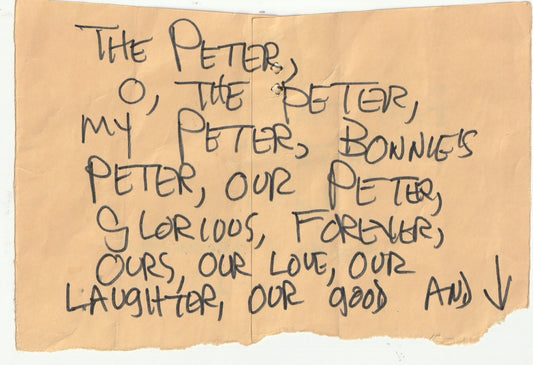 THE PETER,
O, THE PETER,
MY PETER, BONNIE'S
PETER, OUR PETER,
GLORIOUS, FOREVER,
OURS, OUR LOVE, OUR
LAUGHTER, OUR GOOD AND ↓